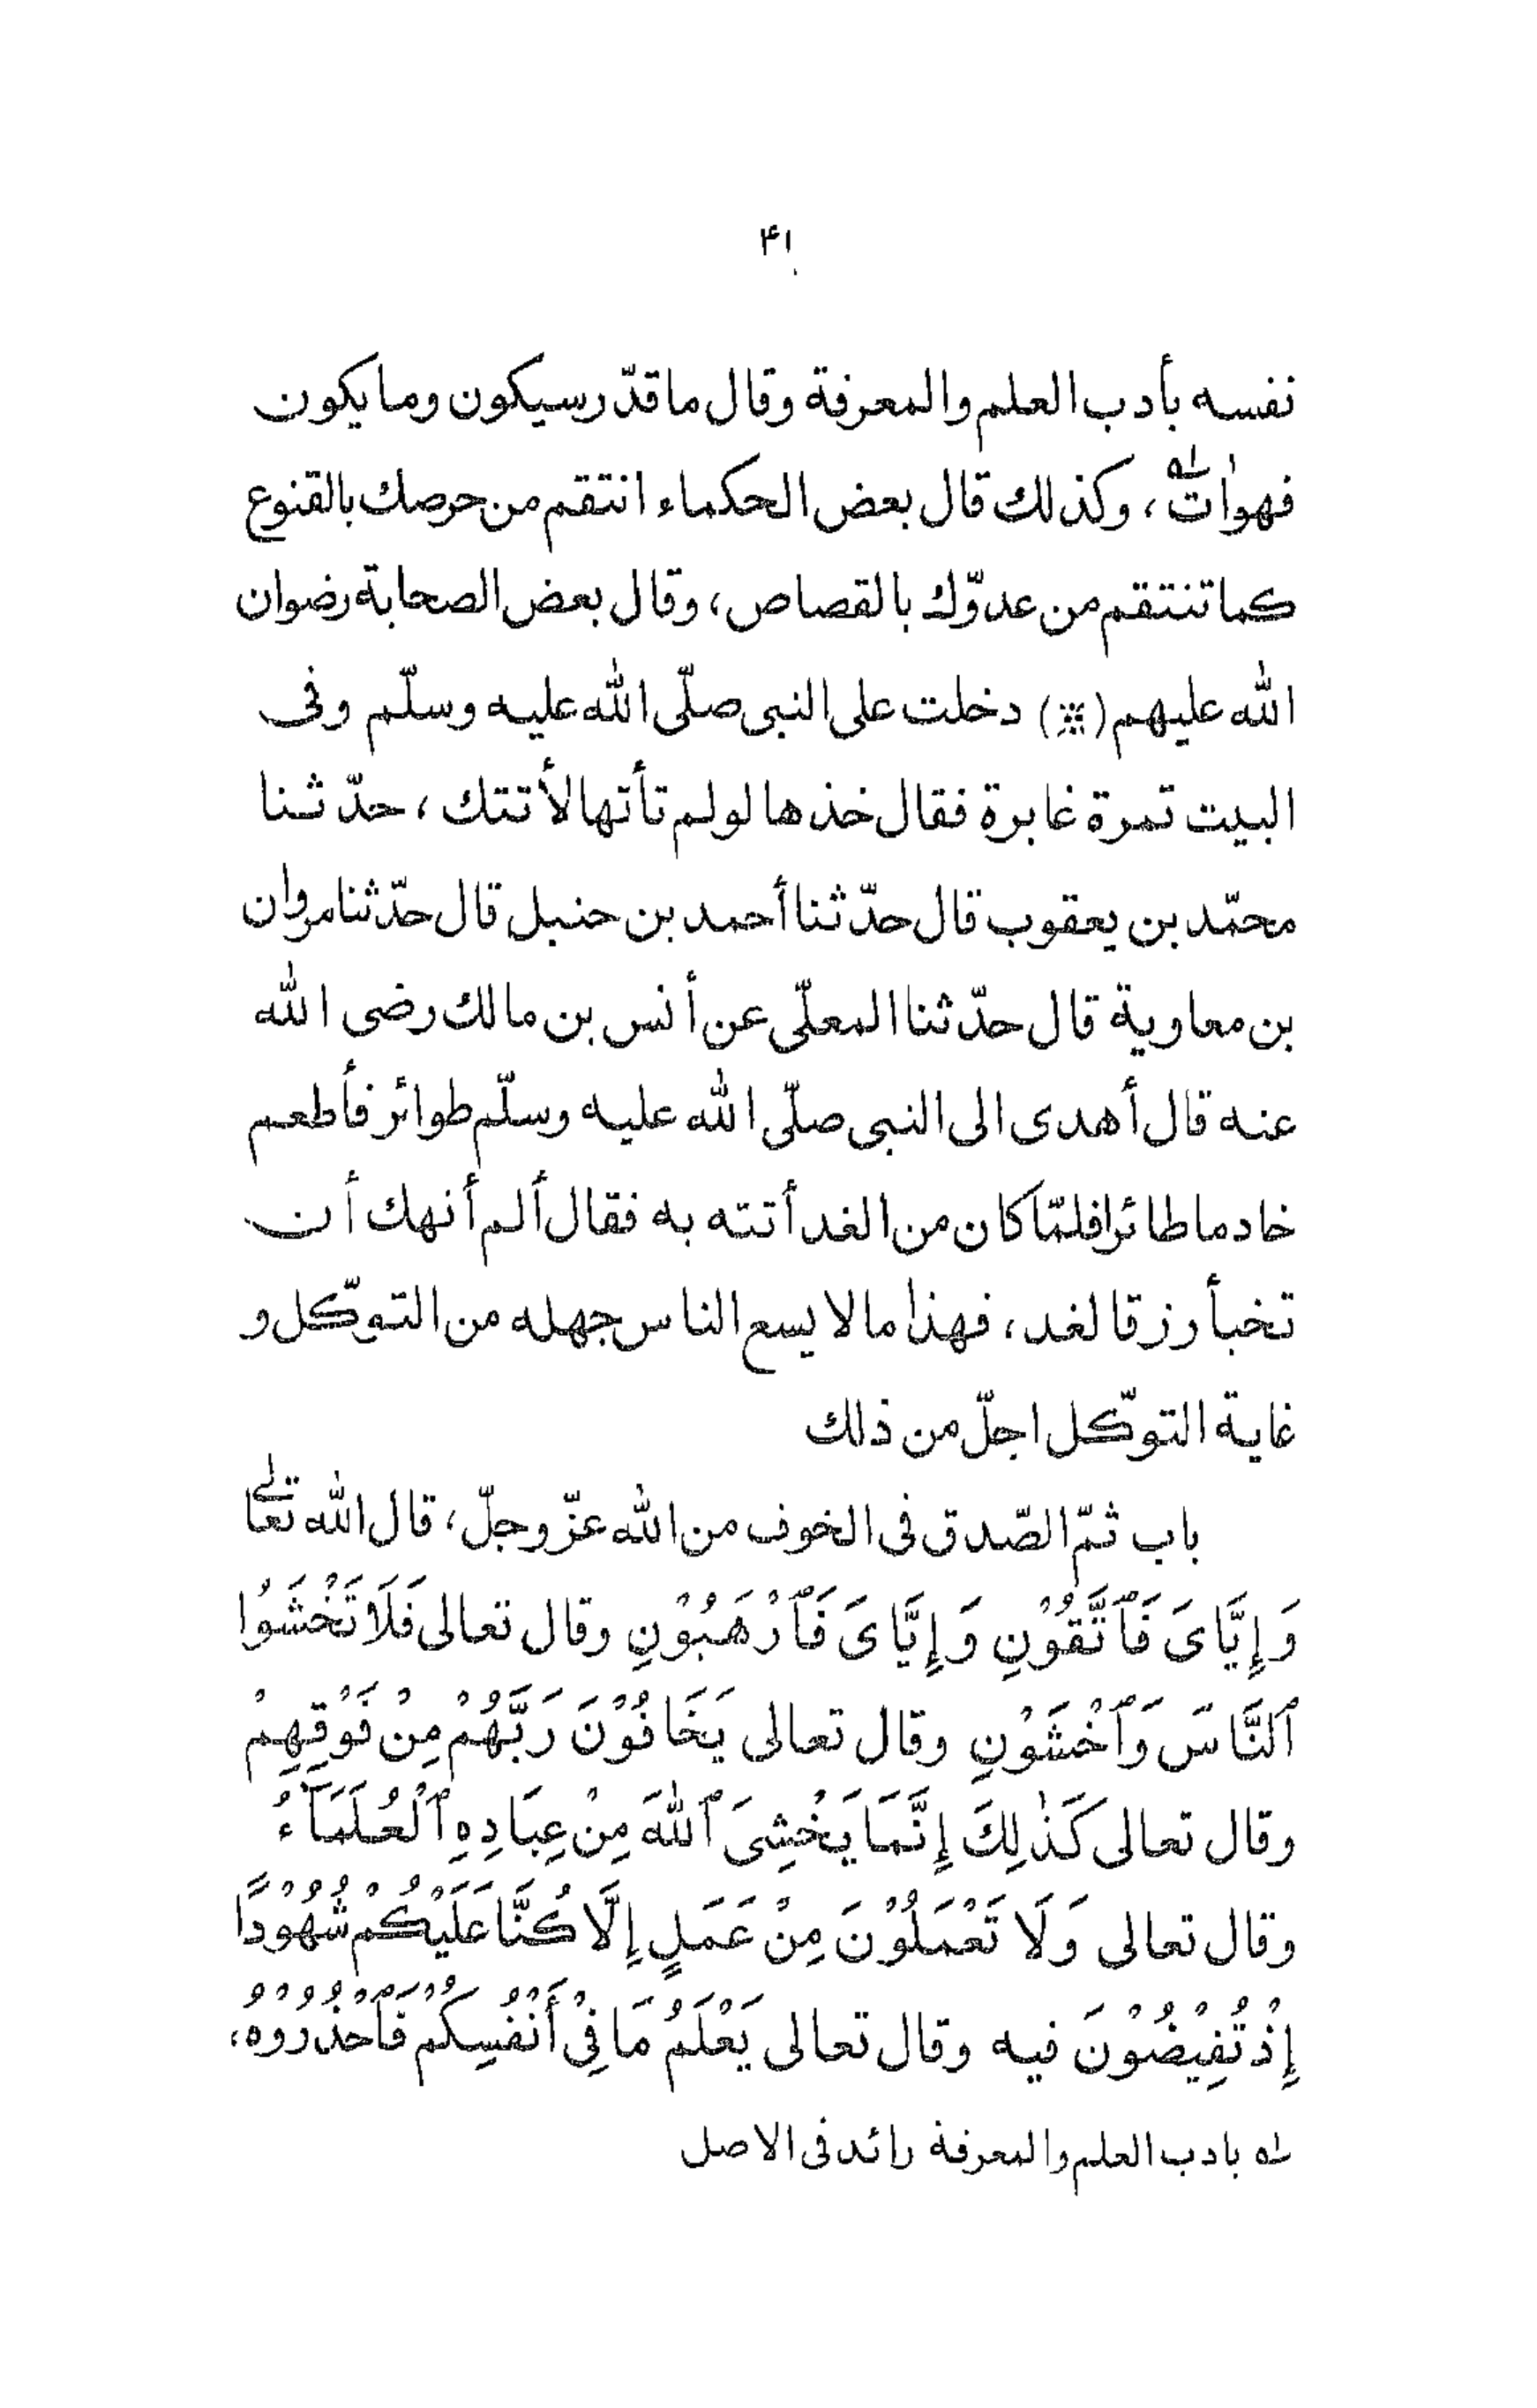 ۴۱
نفسه بأدب العلم والمعرفة وقال ما قدّر سيكون وما يكون
فهواٰتٍ<sup>له</sup>، وكذلك قال بعض الحكماء انتقم من حرصك بالقنوع
كما تنتقم من عدوّك بالقصاص، وقال بعض الصحابة رضوان
الله عليهم (⁂) دخلت على النبى صلّى الله عليه وسلّم وفى
البيت تمرة غابرة فقال خذها لو لم تأتها لأتتك، حدّثنا
محمّد بن يعقوب قال حدّثنا أحمد بن حنبل قال حدّثنا مروان
بن معاوية قال حدّثنا المعلّى عن أنس بن مالك رضى الله
عنه قال أهدى الى النبى صلّى الله عليه وسلّم طوائر فأطعم
خادما طائرا فلمّا كان من الغد أتته به فقال ألم أنهك أن
تخبأ رزقا لغد، فهذا ما لا يسع الناس جهله من التوكّل و
غاية التوكّل اجلّ من ذلك
باب ثمّ الصّدق فى الخوف من الله عزّ وجلّ، قال الله تعالى
وَإِيَّاىَ فَٱتَّقُوْنِ وَإِيَّاىَ فَٱرْهَبُوْنِ وقال تعالى فَلَا تَخْشَوُا
ٱلنَّاسَ وَٱخْشَوْنِ وقال تعالى يَخَافُوْنَ رَبَّهُمْ مِنْ فَوْقِهِمْ
وقال تعالى كَذٰلِكَ إِنَّمَا يَخْشِىَ ٱللهَ مِنْ عِبَادِهِ ٱلْعُلَمَآءُ
وقال تعالى وَلَا تَعْمَلُوْنَ مِنْ عَمَلٍ إِلَّا كُنَّا عَلَيْكُمْ شُهُوْدًا
إِذْ تُفِيْضُوْنَ فيه وقال تعالى يَعْلَمُ مَا فِىْ أَنْفُسِكُمْ فَٱحْذَرُوْهُ،
له بادب العلم والمعرفة رائد فى الاصل